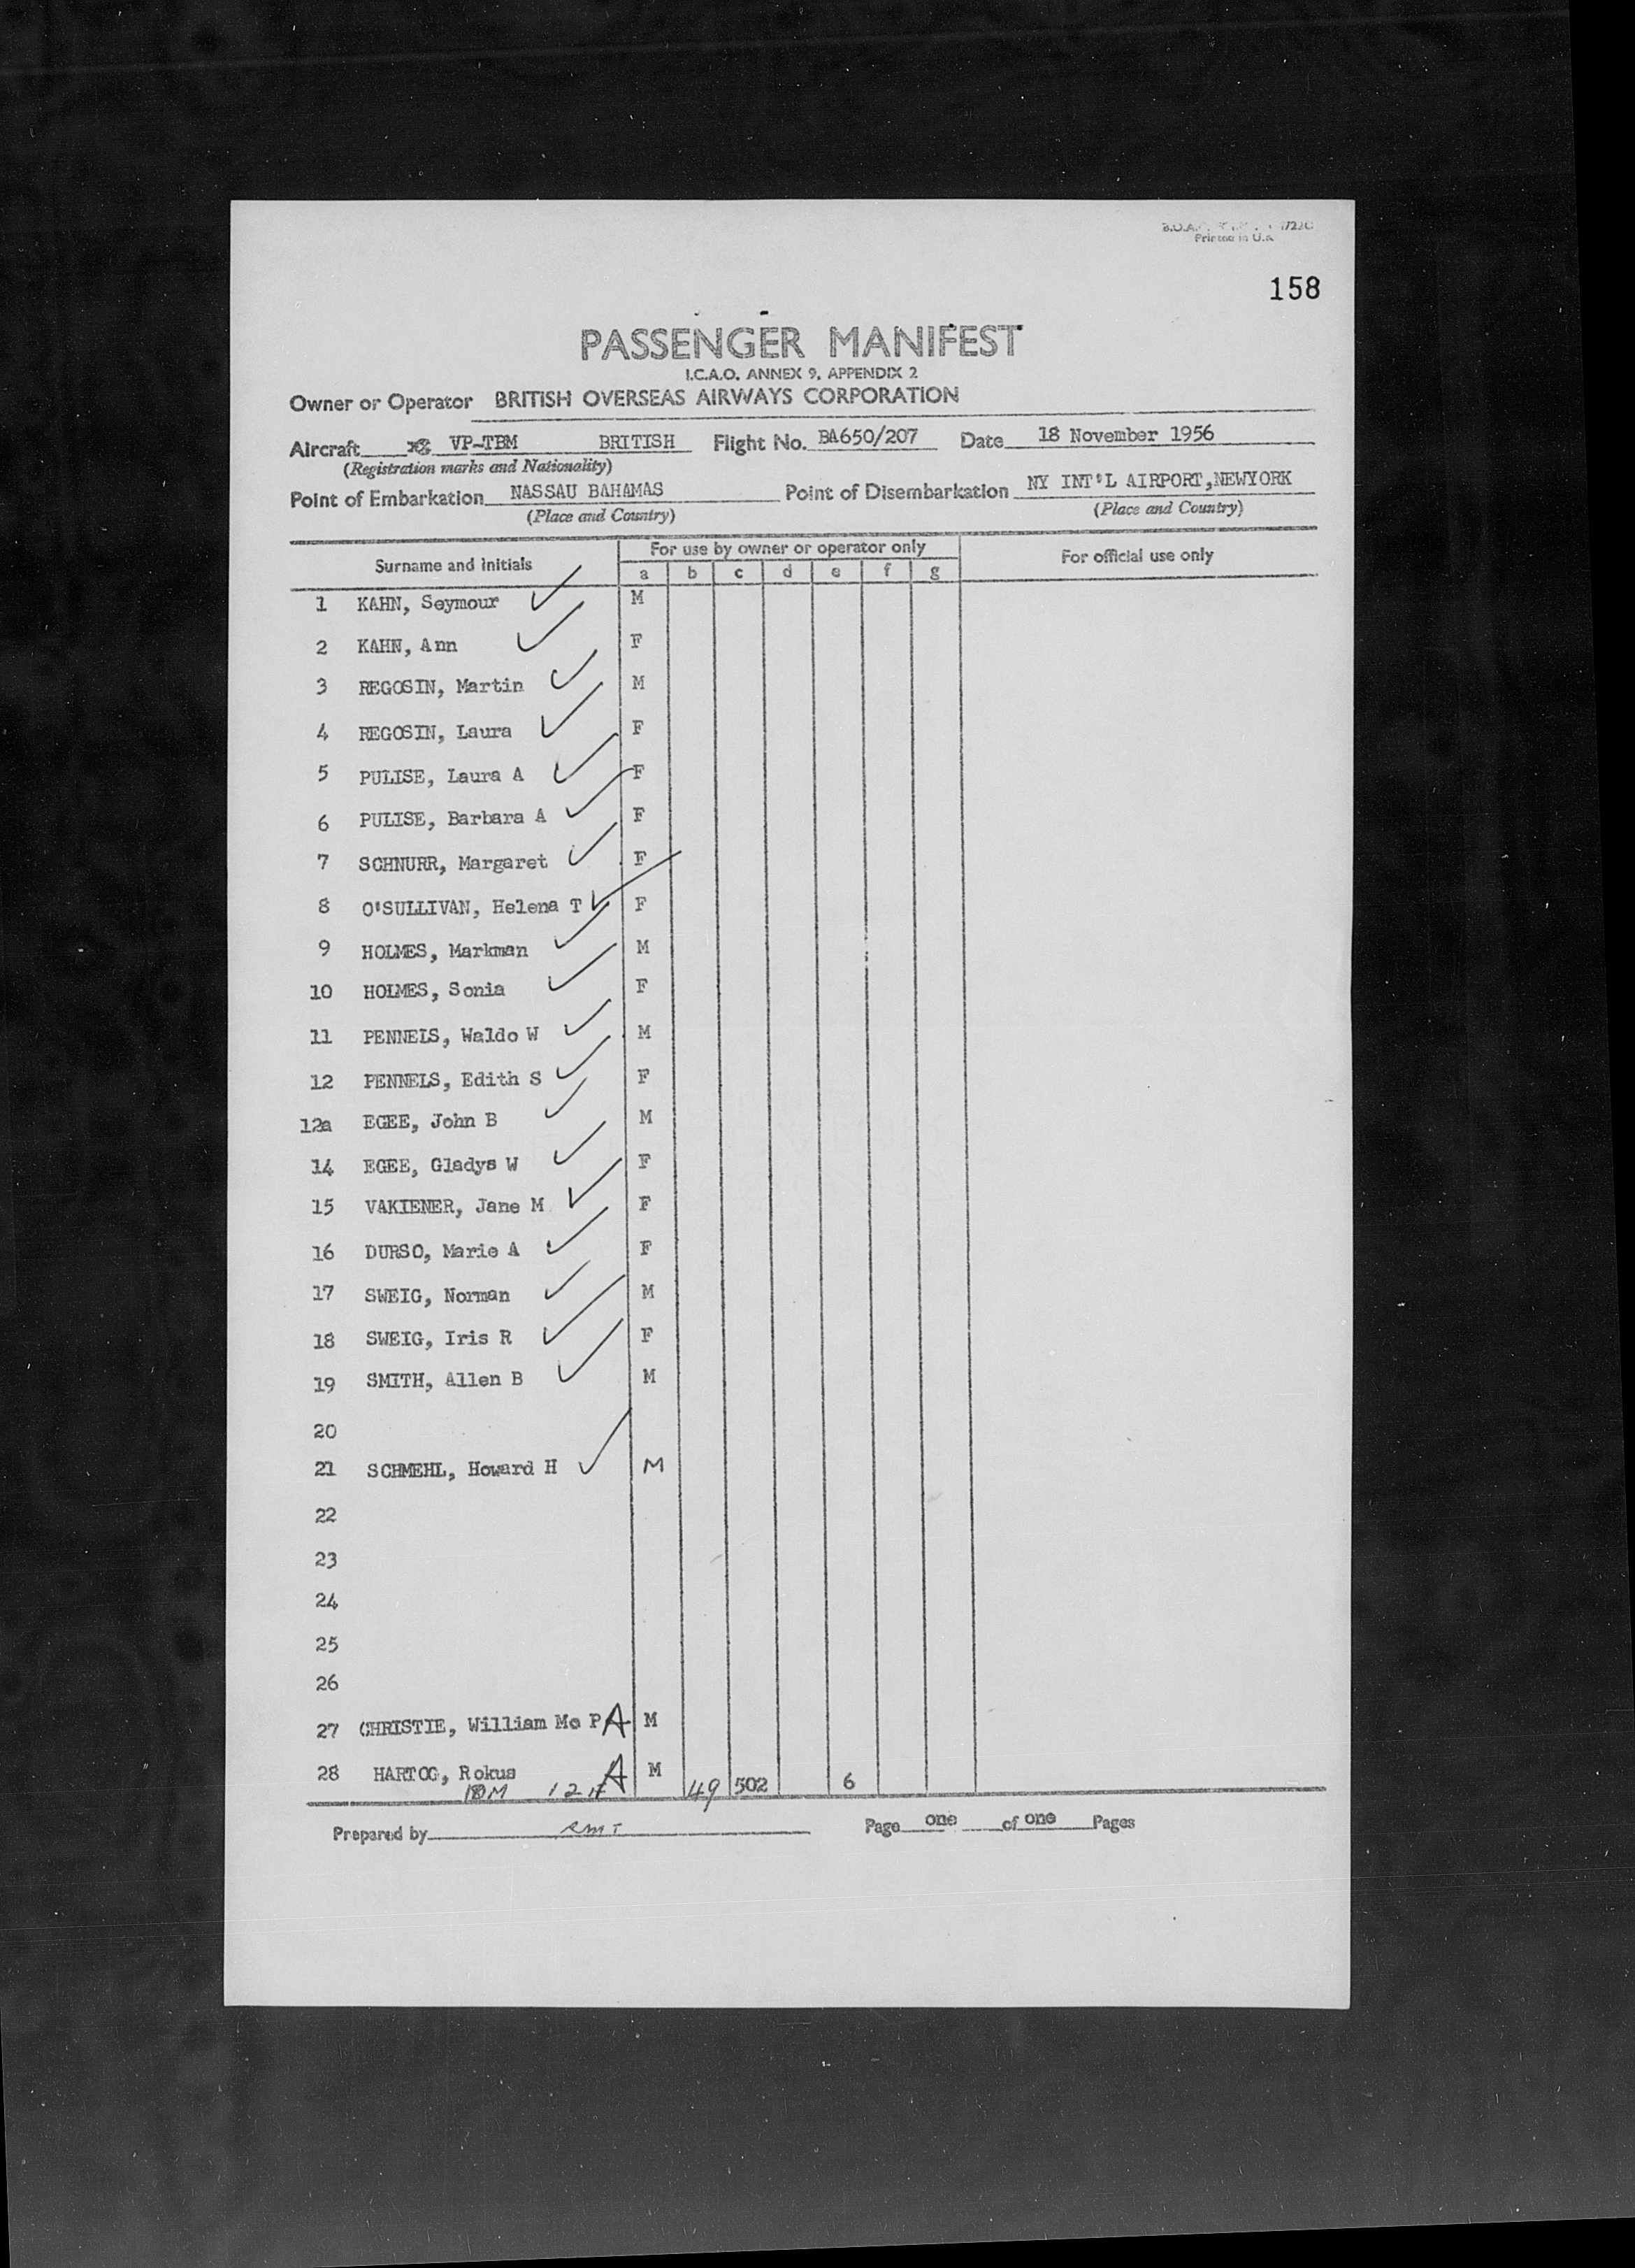 B.O.A.
Printed in U.K.
158
PASSENGER MANIFEST
I.C.A.O. ANNEX 9, APPENDIX 2
Owner or Operator BRITISH OVERSEAS AIRWAYS CORPORATION
Aircraft VP-TBM BRITISH Flight No. BA650/207 Date 18 November 1956
(Registration marks and Nationality)
Point of Embarkation NASSAU BAHAMAS Point of Disembarkation NY INT'L AIRPORT,NEWYORK
(Place and Country) (Place and Country)
Surname and initials For use by owner or operator only For official use only
a b c d e f g
1 KAHN, Seymour M
2 KAHN, Ann F
3 REGOSIN, Martin M
4 REGOSIN, Laura F
5 PULISE, Laura A F
6 PULISE, Barbara A F
7 SCHNURR, Margaret F
8 O'SULLIVAN, Helena T F
9 HOLMES, Markman M
10 HOLMES, Sonia F
11 PENNELS, Waldo W M
12 PENNELS, Edith S F
12a EGEE, John B M
14 EGEE, Gladys W F
15 VAKIENER, Jane M F
16 DURSO, Marie A F
17 SWEIG, Norman M
18 SWEIG, Iris R F
19 SMITH, Allen B M
20
21 SCHMEHL, Howard H M
22
23
24
25
26
27 CHRISTIE, William Mc P A M
28 HARTOG, Rokus A M
12 49 502 6
Prepared by RMT Page one of one Pages